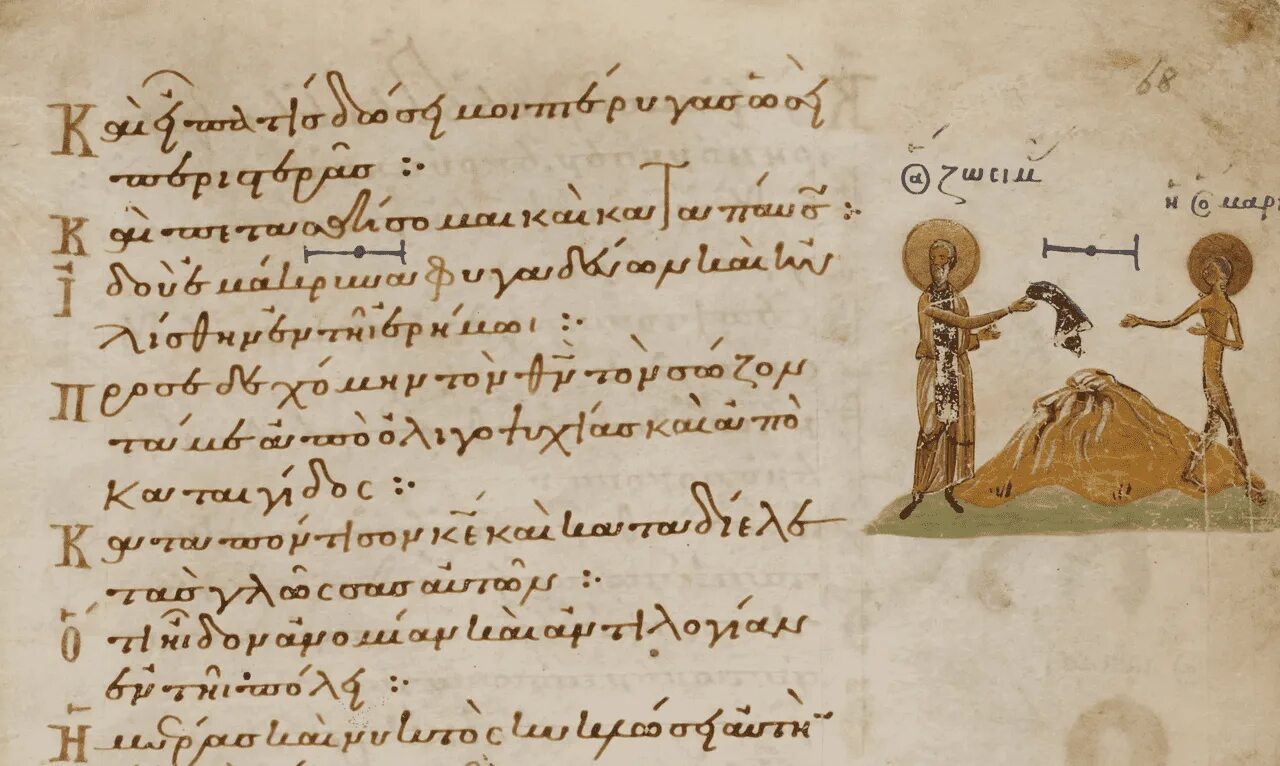 Καὶ εἶπα τίς δώσει μοι πτέρυγας ὡσεὶ
περιστερᾶς :·
Καὶ πετασθήσομαι καὶ καταπαύσω :·
Ἰδοὺ ἐμάκρυνα φυγαδεύων καὶ ηὐ
λίσθην ἐν τῆι ἐρήμωι :·
Προσεδεχόμην τὸν θ̅ν̅ τὸν σώζον
τά με ἀπὸ ὀλιγοψυχίας καὶ ἀπὸ
καταιγίδος :·
Καταπόντισον κ̅ε̅ καὶ καταδίελε
τὰς γλώσσας αὐτῶν :·
Ὅτι εἶδον ἀνομίαν καὶ ἀντιλογίαν
ἐν τῆι πόλει :·
Ἡμέρας καὶ νυκτὸς κυκλώσει αὐτὴν
68
ὁ ἅ ζωσιμ
ἡ ὁ μαρι